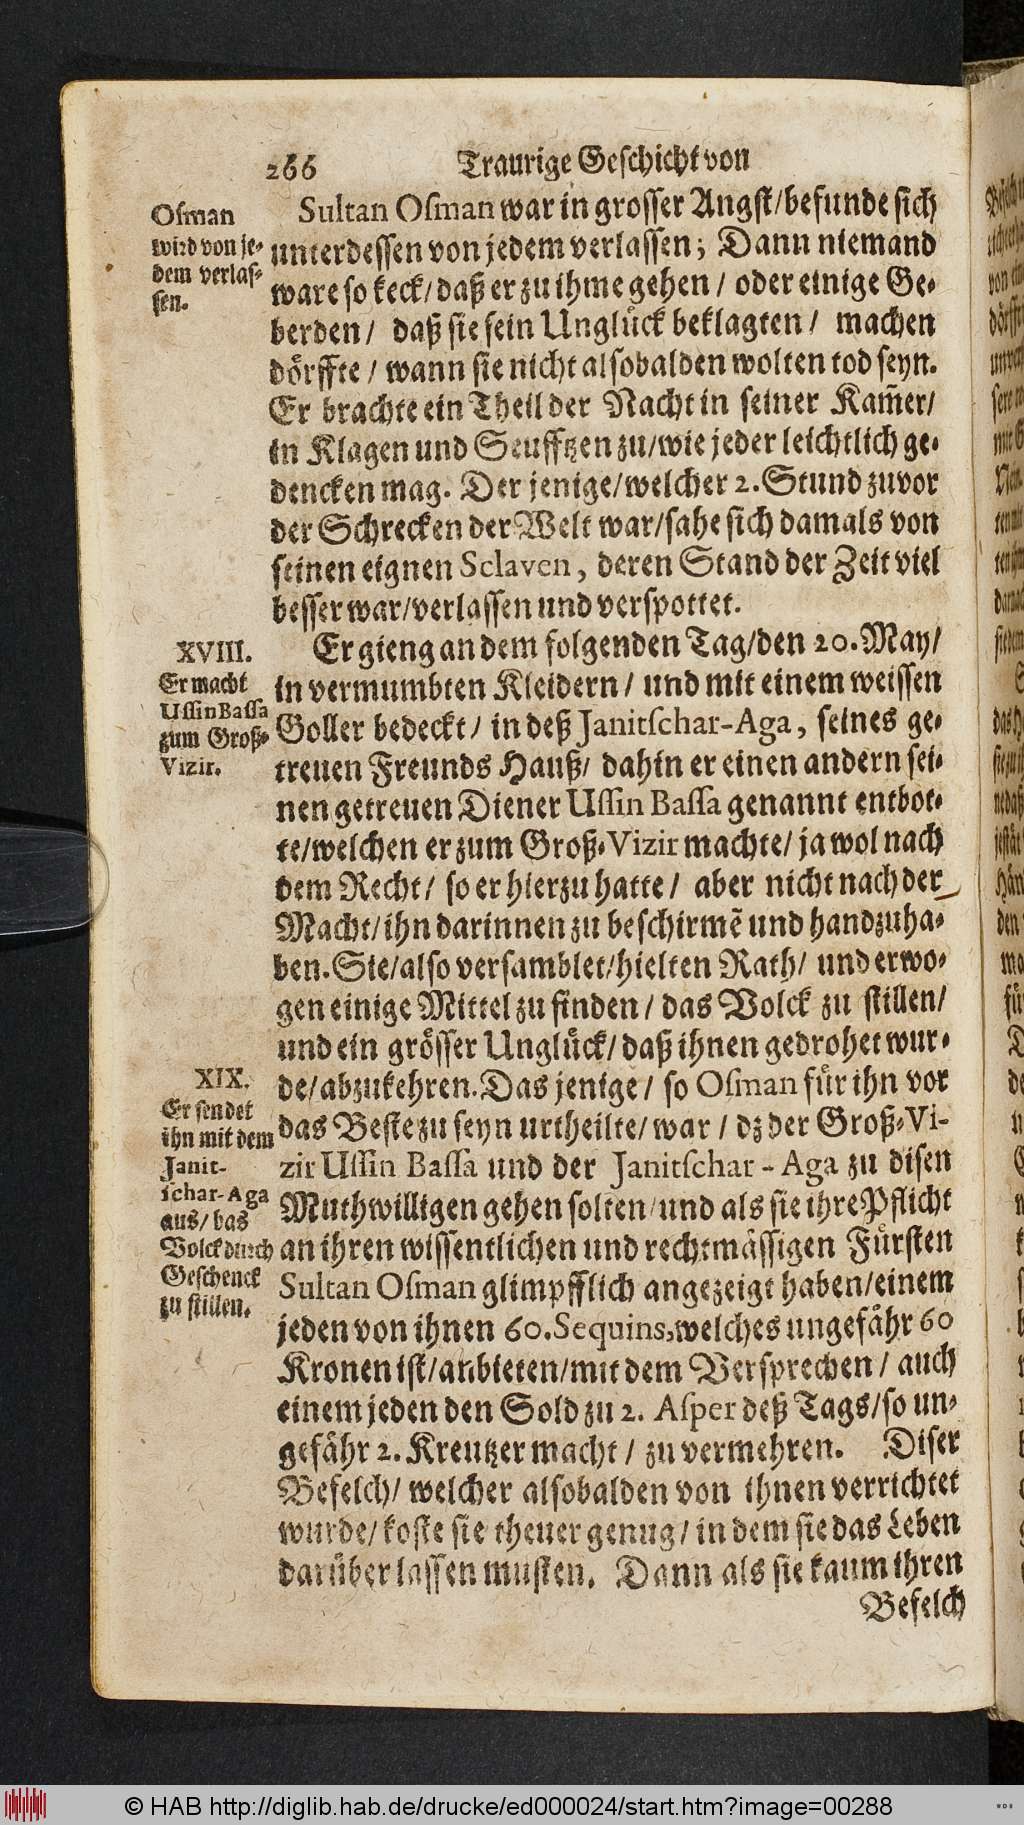 266 Traurige Geschicht von
Osman
wird von je-
dem verlas-
sen.
Sultan Osman war in grosser Angst/befunde sich
unterdessen von jedem verlassen; Dann niemand
ware so keck/daß er zu ihme gehen / oder einige Ge-
berden / daß sie sein Unglück beklagten / machen
dörffte / wann sie nicht alsobalden wolten tod seyn.
Er brachte ein Theil der Nacht in seiner Kam̃er/
in Klagen und Seufftzen zu/wie jeder leichtlich ge-
dencken mag. Der jenige/welcher 2. Stund zuvor
der Schrecken der Welt war/sahe sich damals von
seinen eignen Sclaven, deren Stand der Zeit viel
besser war/verlassen und verspottet.
XVIII.
Er macht
Ussin Bassa
zum Groß-
Vizir.
Er gieng an dem folgenden Tag/den 20. May/
in vermumbten Kleidern / und mit einem weissen
Goller bedeckt / in deß Janitschar-Aga, seines ge-
treuen Freunds Hauß/ dahin er einen andern sei-
nen getreuen Diener Ussin Bassa genannt entbot-
te/welchen er zum Groß-Vizir machte/ ja wol nach
dem Recht/ so er hierzu hatte / aber nicht nach der
Macht/ihn darinnen zu beschirmẽ und handzuha-
ben. Sie/also versamblet/hielten Rath/ und erwo-
gen einige Mittel zu finden / das Volck zu stillen/
und ein grösser Unglück/daß ihnen gedrohet wur-
de/abzukehren. Das jenige / so Osman für ihn vor
das Beste zu seyn urtheilte/ war / dz der Groß-Vi-
zir Ussin Bassa und der Janitschar-Aga zu disen
Muthwilligen gehen solten/und als sie ihre Pflicht
an ihren wissentlichen und rechtmässigen Fürsten
Sultan Osman glimpfflich angezeigt haben/einem
jeden von ihnen 60. Sequins, welches ungefähr 60
Kronen ist/anbieten/mit dem Versprechen / auch
einem jeden den Sold zu 2. Asper deß Tags/so un-
gefähr 2. Kreutzer macht / zu vermehren. Diser
Befelch/ welcher alsobalden von ihnen verrichtet
wurde/koste sie theuer genug / in dem sie das Leben
darüber lassen musten. Dann als sie kaum ihren
XIX.
Er sendet
ihn mit dem
Janit-
schar-Aga
aus/das
Volck durch
Geschenck
zu stillen.
Befelch
© HAB http://diglib.hab.de/drucke/ed000024/start.htm?image=00288